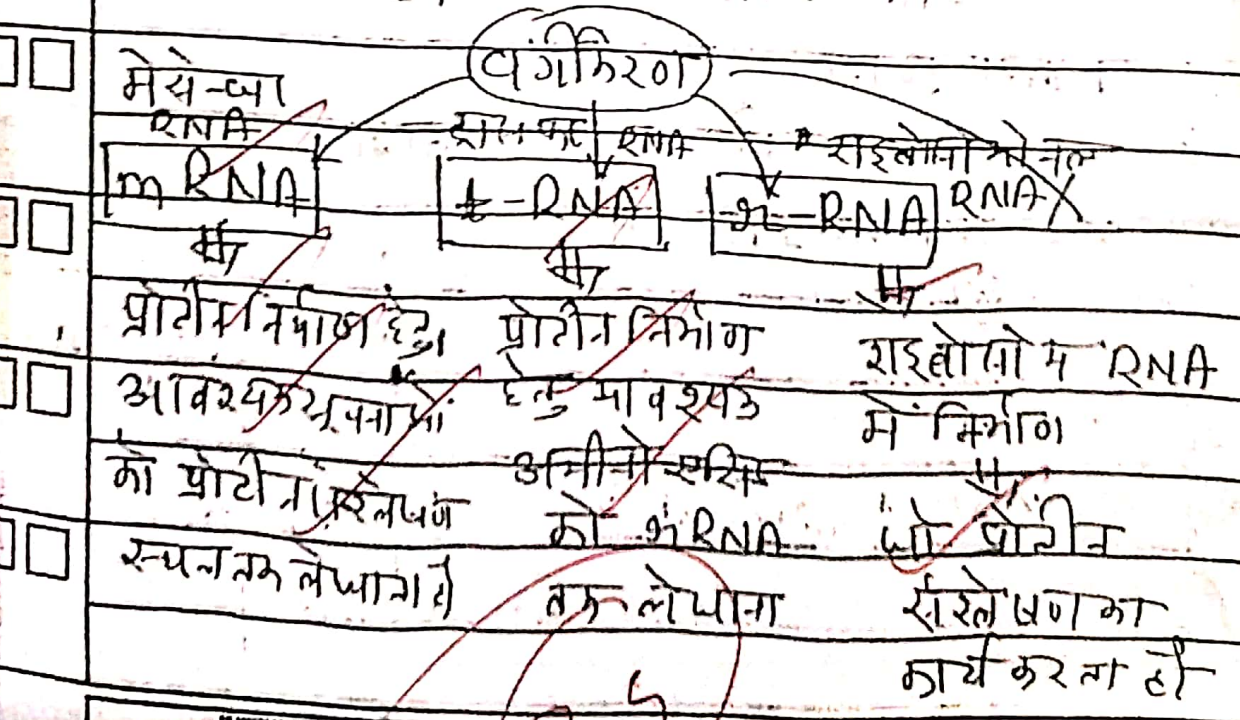 वर्गीकरण
मेसेन्जर
RNA
m RNA
प्रोटीन निर्माण हेतु
आवश्यक सूचनाओं
को प्रोटीन संश्लेषण
स्थल तक लेजाना है
RNA
t-RNA
प्रोटीन निर्माण
हेतु आवश्यक
अमीनो एसिड
को RNA
तक लेजाना
RNA
r-RNA
राइबोसोम RNA
में निर्माण
जो प्रोटीन
संश्लेषण का
कार्य करता है
5